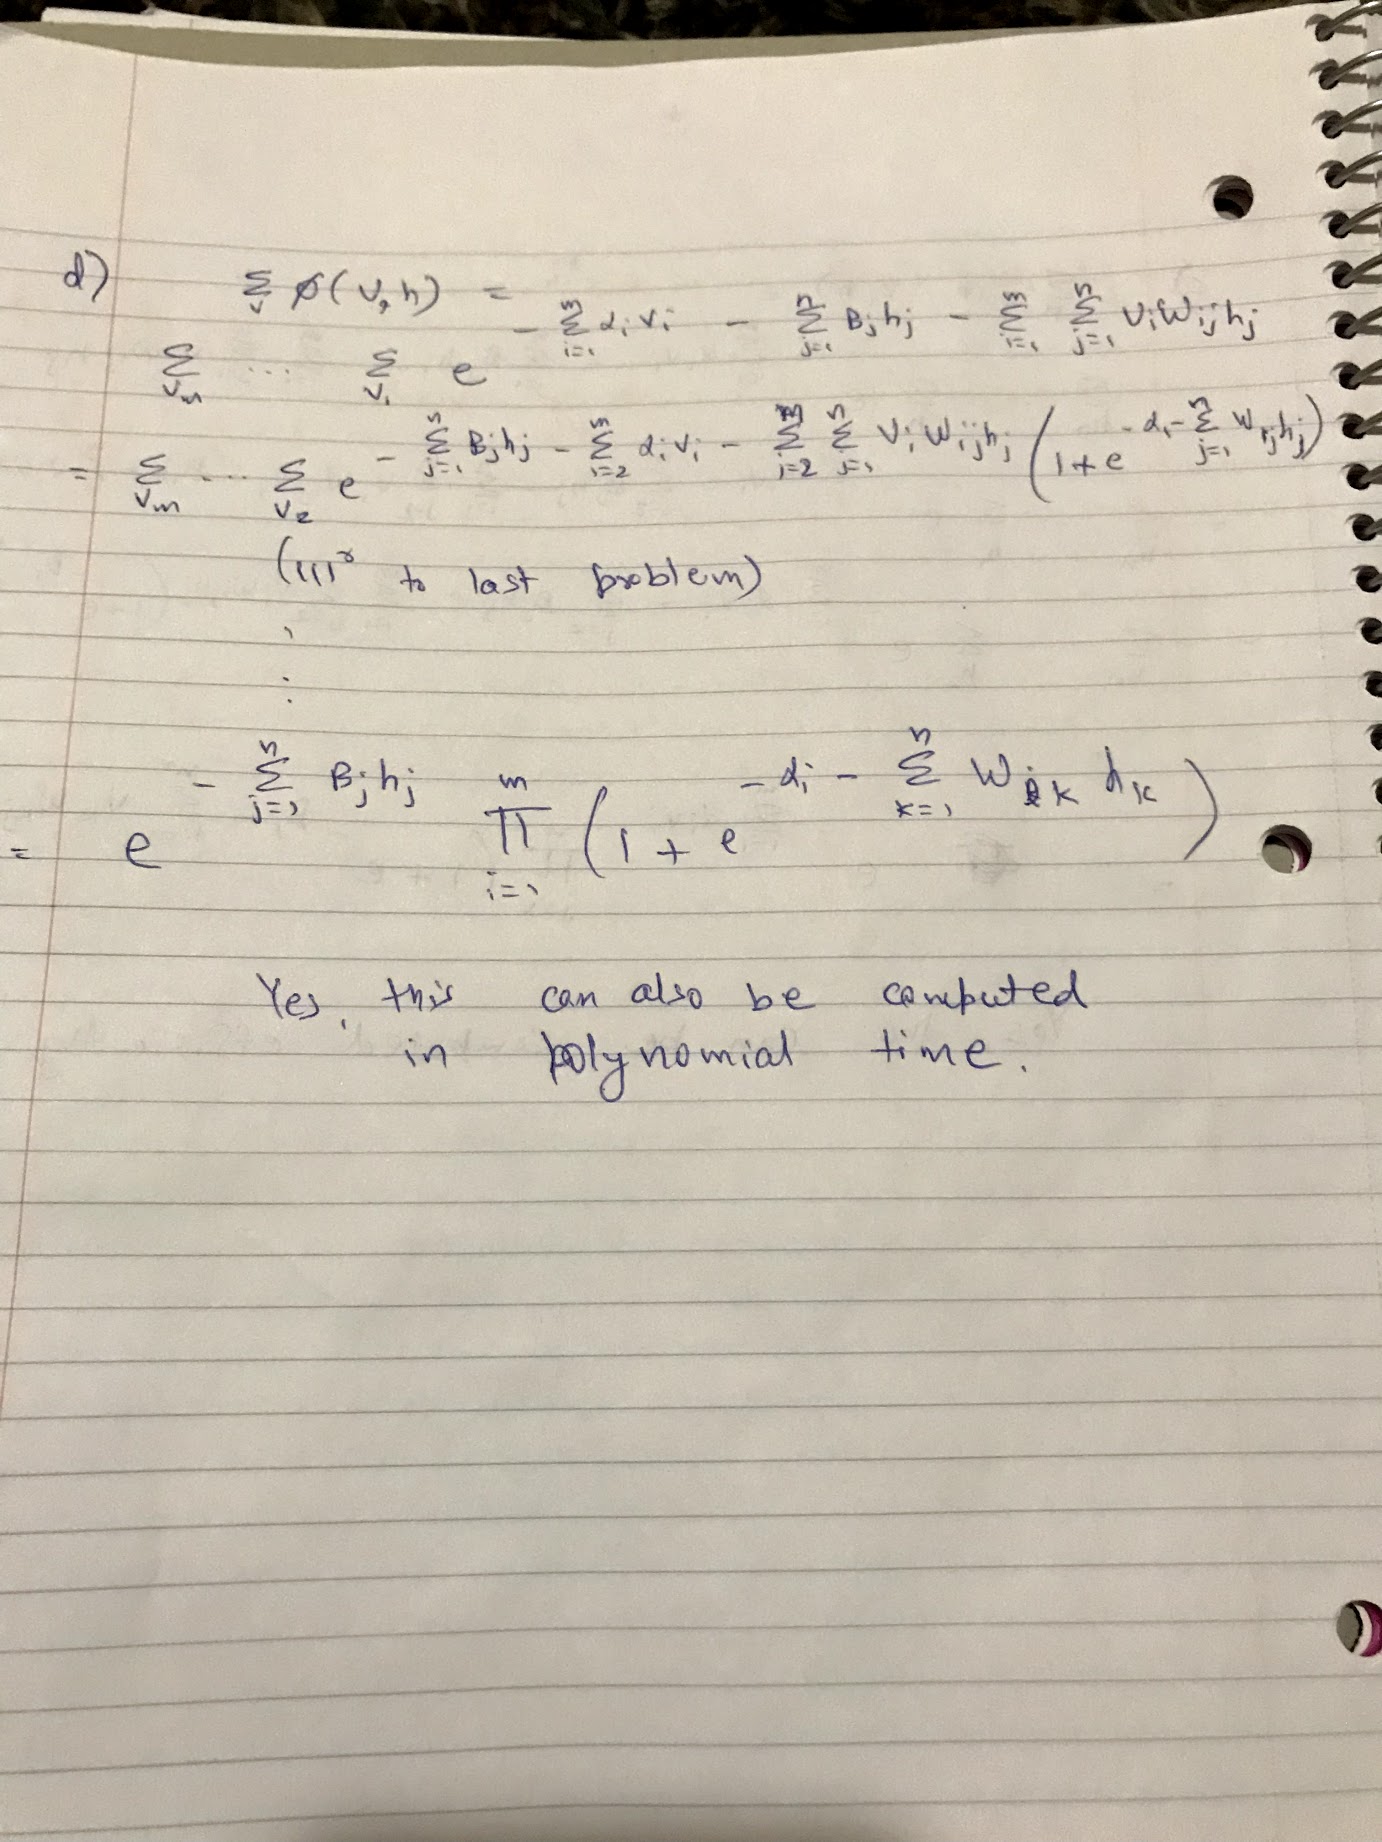 d) Σ_v ø(v, h) =
Σ_{v_m} ... Σ_{v_1} e^{- Σ_{i=1}^{m} α_i v_i - Σ_{j=1}^{n} B_j h_j - Σ_{i=1}^{m} Σ_{j=1}^{n} v_i W_{ij} h_j}
= Σ_{v_m} ... Σ_{v_2} e^{- Σ_{j=1}^{n} B_j h_j - Σ_{i=2}^{m} α_i v_i - Σ_{i=2}^{m} Σ_{j=1}^{n} v_i W_{ij} h_j} (1 + e^{- α_1 - Σ_{j=1}^{n} W_{1j} h_j})
(|||^r to last problem)
⋮
= e^{- Σ_{j=1}^{n} B_j h_j} Π_{i=1}^{m} (1 + e^{- α_i - Σ_{k=1}^{n} W_{ik} h_k})
Yes, this can also be computed
in polynomial time.